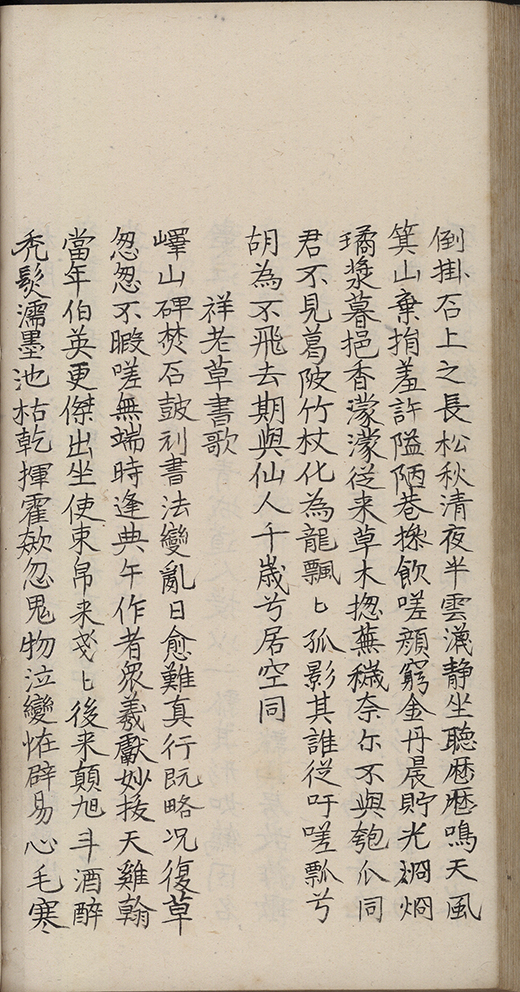 倒掛石上之長松秋清夜半雲漢静坐聽厯厯鳴天風
箕山棄捐羞許隘陋巷摻飲嗟顔窮金丹晨貯光烱烱
璚漿暮挹香濛濛從来草木揔蕪穢奈尓不與匏瓜同
君不見葛陂竹杖化為龍飄〻孤影其誰從吁嗟瓢兮
胡為不飛去期與仙人千歳兮居空同
祥老草書歌
嶧山碑焚石鼓刓書法變亂日愈難真行既略况復草
怱怱不暇嗟無端時逢典午作者衆羲獻妙拔天雞翰
當年伯英更傑出坐使束帛来戔〻後来顛旭斗酒醉
秃髮濡墨池枯乾揮霍欻忽鬼物泣變恠辟易心毛寒